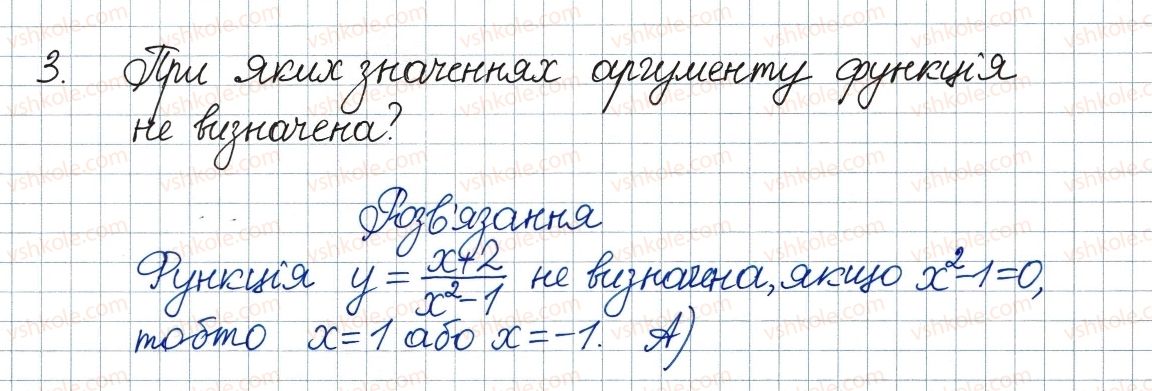 3. При яких значеннях аргументу функція
не визначена?
Розв'язання
Функція y = \frac{x+2}{x^2-1} не визначена, якщо x^2-1=0,
тобто x=1 або x=-1. А)